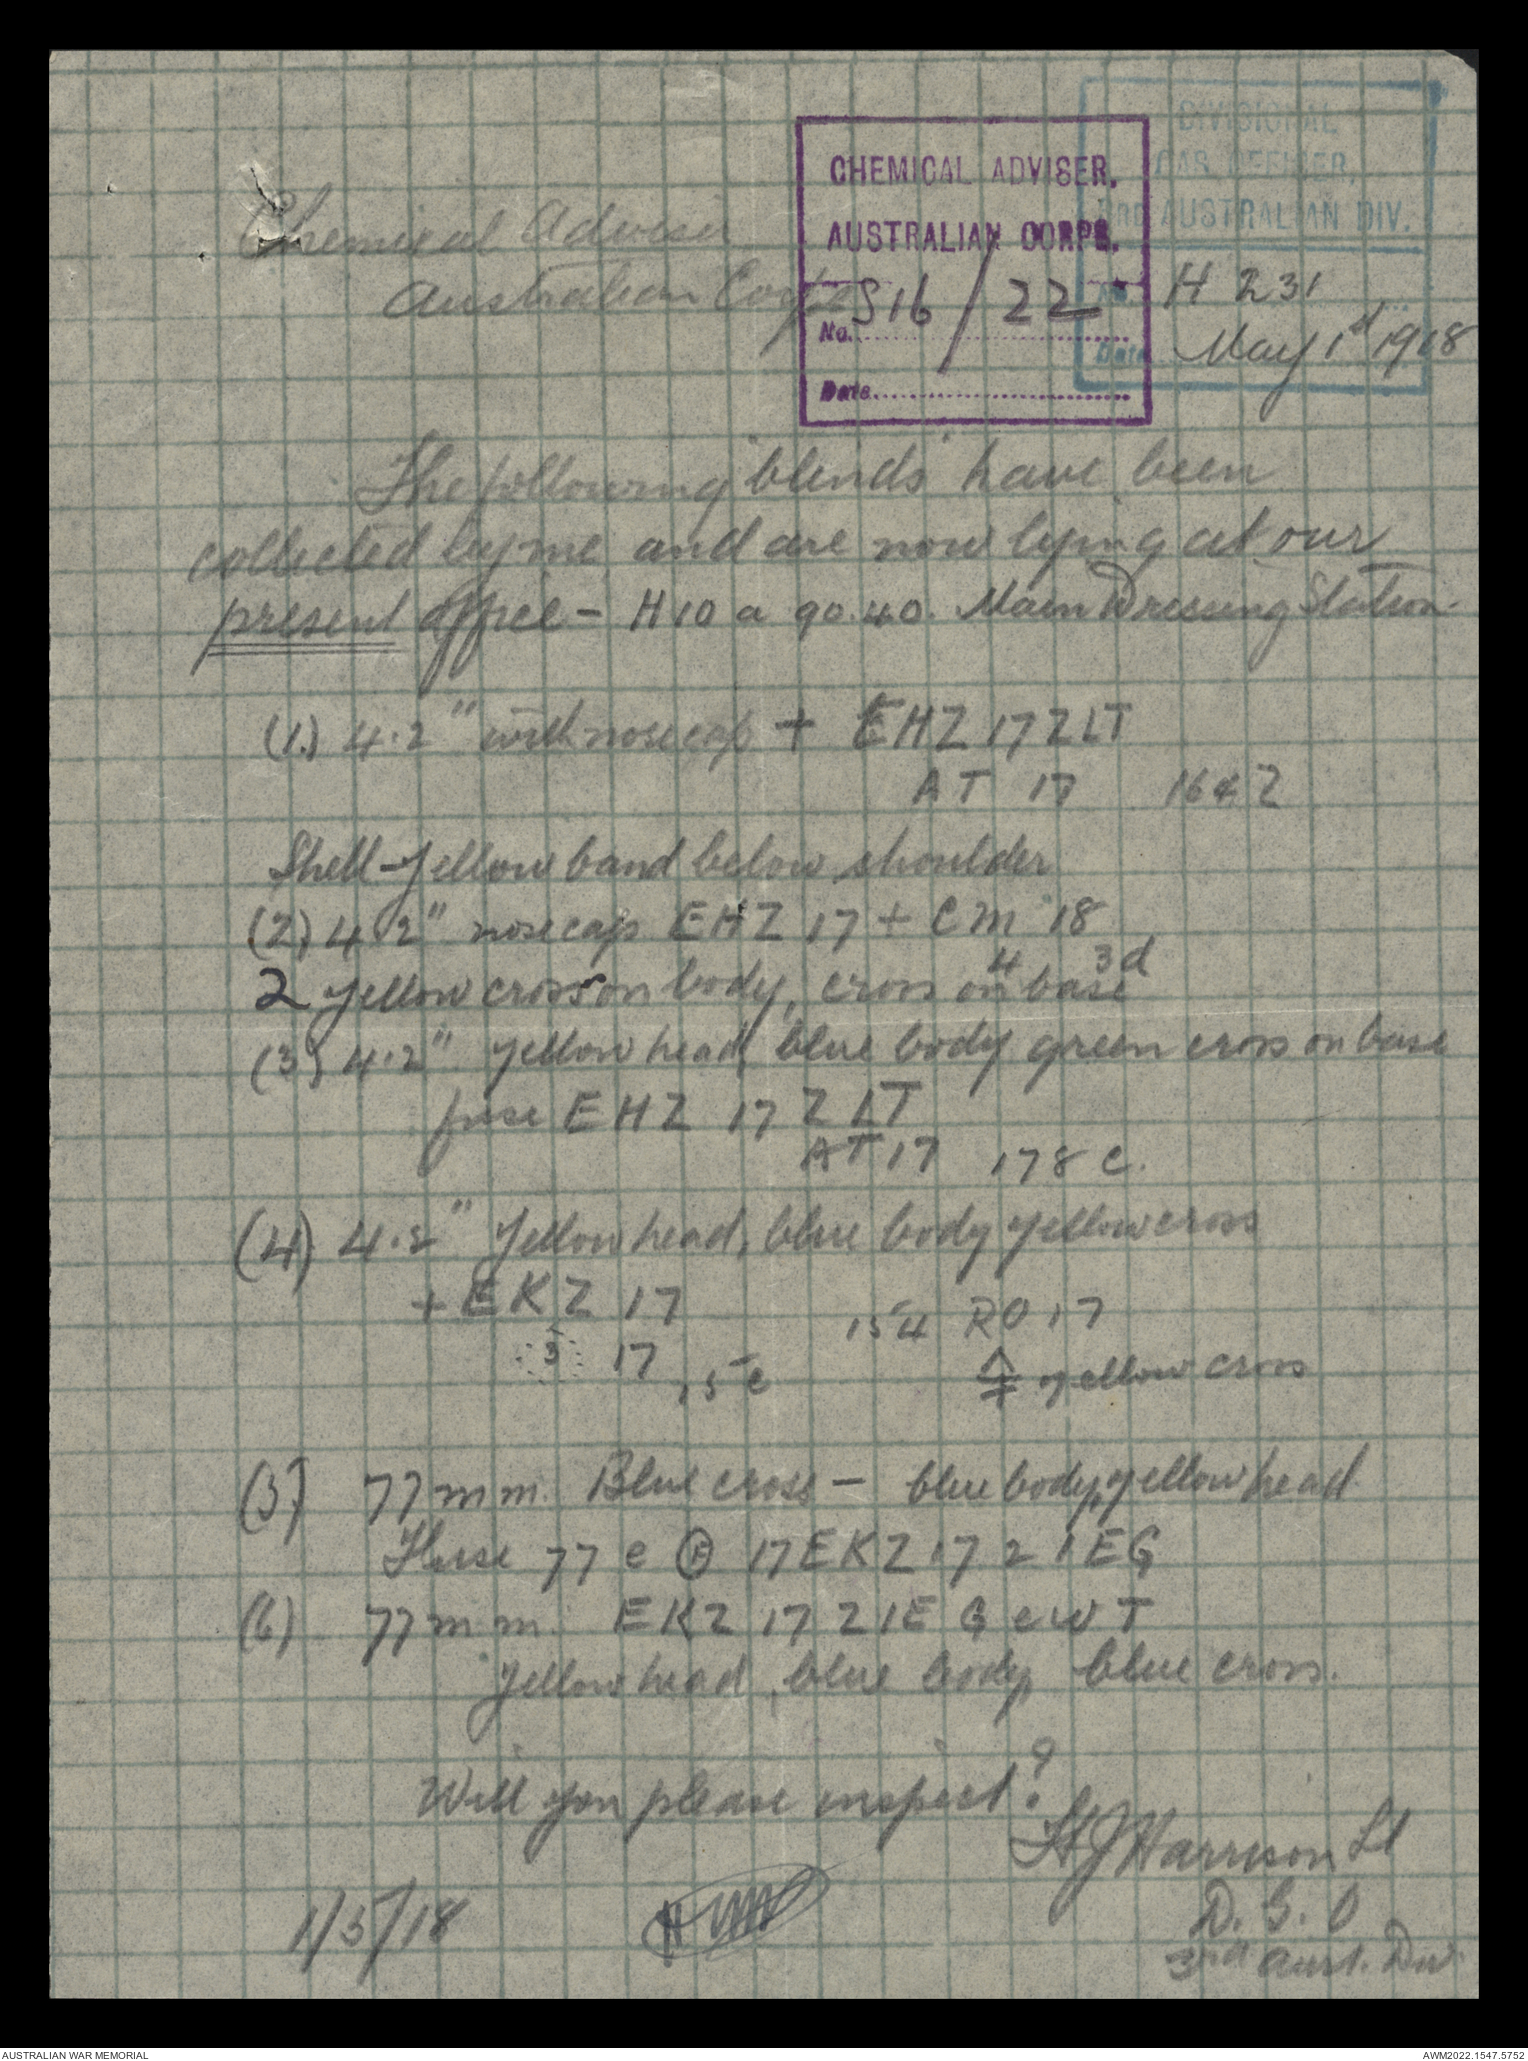 DIVISIONAL
GAS OFFICER,
3rd AUSTRALIAN DIV.
CHEMICAL ADVISER,
AUSTRALIAN CORPS.
No. S16/22
Date
H 231
Date May 1d 1918
Chemical Adviser
Australian Corps
The following "blinds" have been
collected by me and are now lying at our
present office - H 10 a 90.40. Main Dressing Station.
(1.) 4.2" with nosecap + EHZ 17 ZLT
AT 17 16 & Z
Shell - yellow band below shoulder
(2) 4.2" nosecap EHZ 17 + CM 18
2 yellow cross on body, cross on base
4 3d
(3) 4.2" yellow head, blue body green cross on base
fuse EHZ 17 Z LT
AT 17 178 C.
(4) 4.2" Yellow head, blue body yellow cross
+ EKZ 17 154 RO 17
3 17 15 e yellow cross
(5) 77 mm. Blue cross - blue body, yellow head
Fuse 77 e 17 EKZ 17 2 1EG
(6) 77 mm. EKZ 17 Z 1E G e W T
Yellow head, blue body, blue cross.
Will you please inspect?
Harrison Lt
D. G. O
3rd Aust. Div.
1/5/18
AUSTRALIAN WAR MEMORIAL
AWM2022.1547.5752